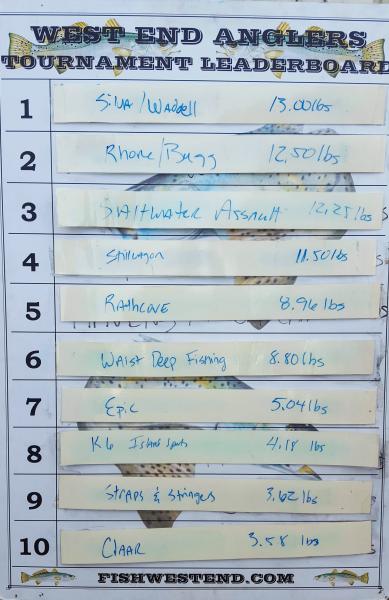 WEST END ANGLERS
TOURNAMENT LEADERBOARD
1 Silva/Waddell 13.00lbs
2 Rhone/Bugg 12.50lbs
3 Saltwater Assault 12.25lbs
4 11.50lbs
5 Rathcove 8.96 lbs
6 Waist Deep Fishing 8.80lbs
7 Epic 5.04lbs
8 K6 Island 4.18 lbs
9 Straps & Stringers 3.62lbs
10 Claar 3.58 lbs
FISHWESTEND.COM